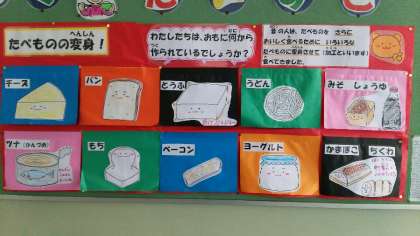 たべものの変身!
へんしん
わたしたちは、おもに何から
作られているでしょうか?
昔の人は、たべものを さらに
おいしく食べるために いろいろな
たべものに変身させて(加工といいます)
食べてきました。
チーズ
パン
とうふ
うどん
みそ しょうゆ
ツナ(かんづめ)
もち
ベーコン
ヨーグルト
かまぼこ ちくわ